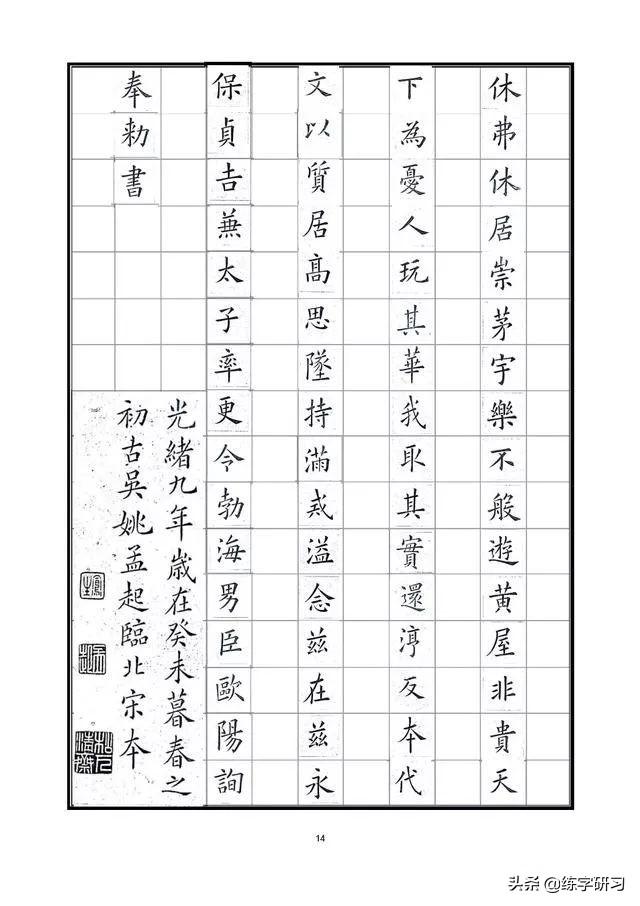 休弗休居崇茅宇樂不般遊黄屋非貴天
下為憂人玩其華我取其實還淳反本代
文以質居髙思墜持滿戒溢念兹在兹永
保貞吉兼太子率更令勃海男臣歐陽詢
奉勑書
光緒九年歲在癸未暮春之
初古吳姚孟起臨北宋本
14
头条 @练字研习